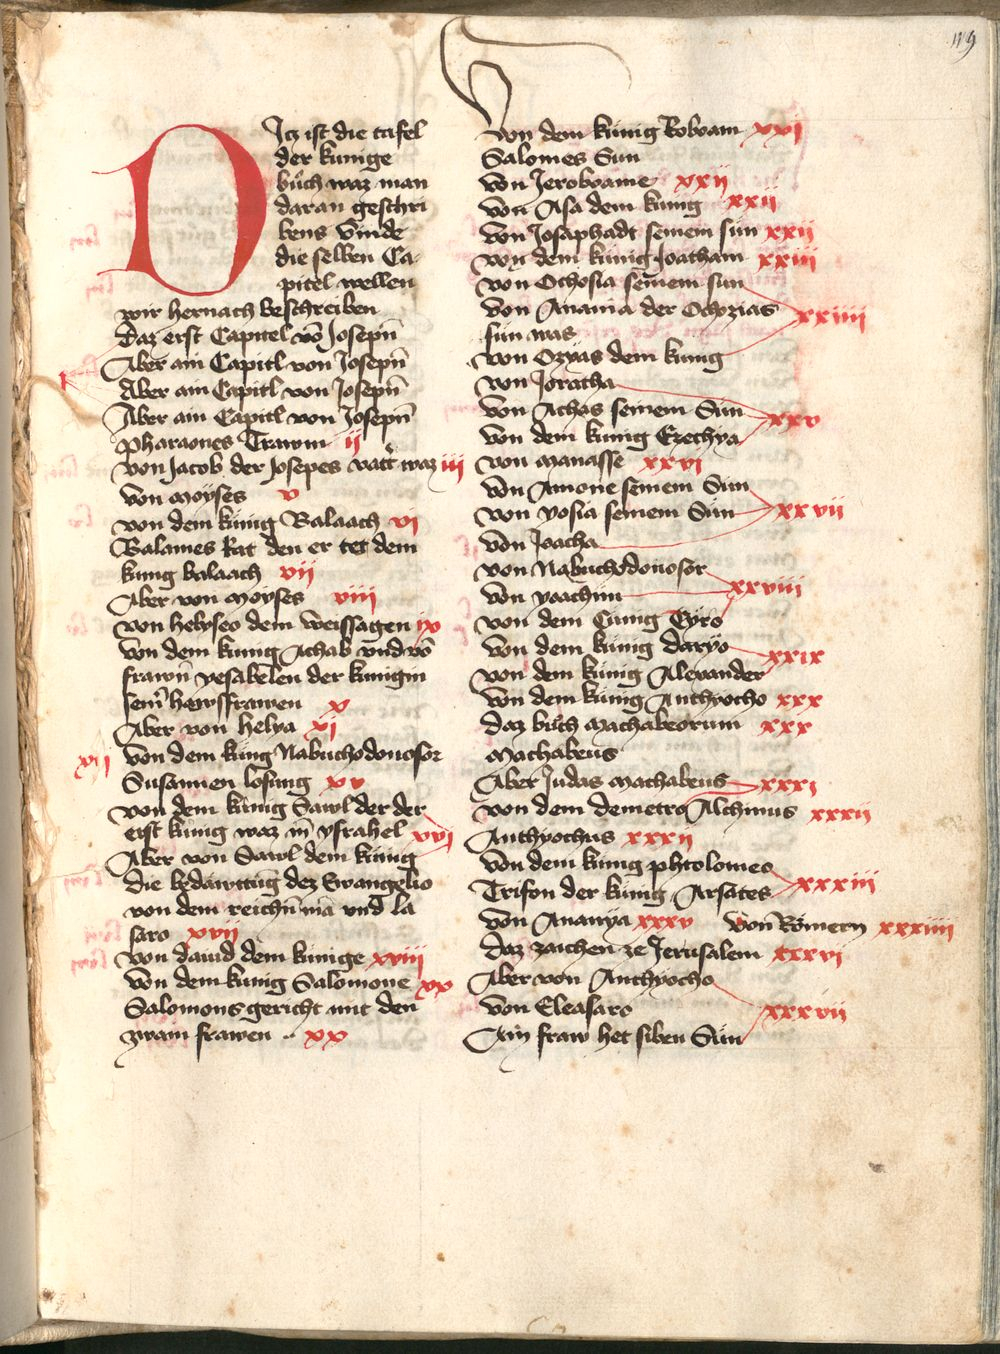 119
DItz ist die tafel
der kunige
bůch waz man
daran geschri
bens vinde
die selben Ca-
pitel wellen
wir hernach beschreiben
Daz erst Capitel vō Josepħ
Aber ain Capitl von Josepħ
Aber ain Capitl von Josepħ
Aber ain Capitl von Josepħ
Pharaones Trawm ii
von Jacob der Josepes vatt' waz iii
von Moyses v
von dem kúnig Balaach vi
Balames Rat den er tet dem
kung balaach vii
Aber von Moyses viii
von helyseo dem weissagen ix
Von dem kunig Achab vnd vō
frawn yesabelen der kunigin
sein̄ hawsfrawen x
Aber von helya xi
xii von dem king Nabuchodonosor
Susannen losung xv
von dem kúnig Sawl der der
erst kúnig waz in ysrahel xvi
Aber von Sawl dem kúnig
die bedawttūg dez Ewangelio
von dem reichn̄ mā vnd la
saro xvii
von dauid dem kúnige xviii
Von dem kunig Salomone xx
Salomons gericht mit den
zwain frawen .. xx
Von dem kúnig Roboam xxi
Salomes Sun
von Jeroboame xxii
von Asa dem kunig xxii
von Josaphadt seinem sún xxii
von dem kúnig Joatham xxiii
von Ochosia seinem sun
von Anania der Ochozias xxiiii
sun was
von Ozyas dem kunig
von Joratha
von Achas seinem Sún xxv
von dem kúnig Ezechya
von Manasse xxvi
von Amone seinem Sun
von yosia seinem Sún xxvii
von Joacha
von Nabuchodonosor
von yoachim xxviii
von dem Cúnig Cyro
von dem kúnig daryo xxix
von dem kúnig Alexander
von dem kúnig Anthyocho xxx
daz bůch Machabeorum xxx
Machabeus
Aber Judas Machabeus xxxi
von dem demetro Alchimus xxxii
Anthyochus xxxii
von dem kúnig phtolomeo
Trifon der kúnig Arsates xxxiii
von Ananya xxxv Von Römern xxxiiii
daz zaichen ze Jerusalem xxxvi
Aber von Anthyocho
von Eleasaro xxxvii
Ain fraw het siben Sún